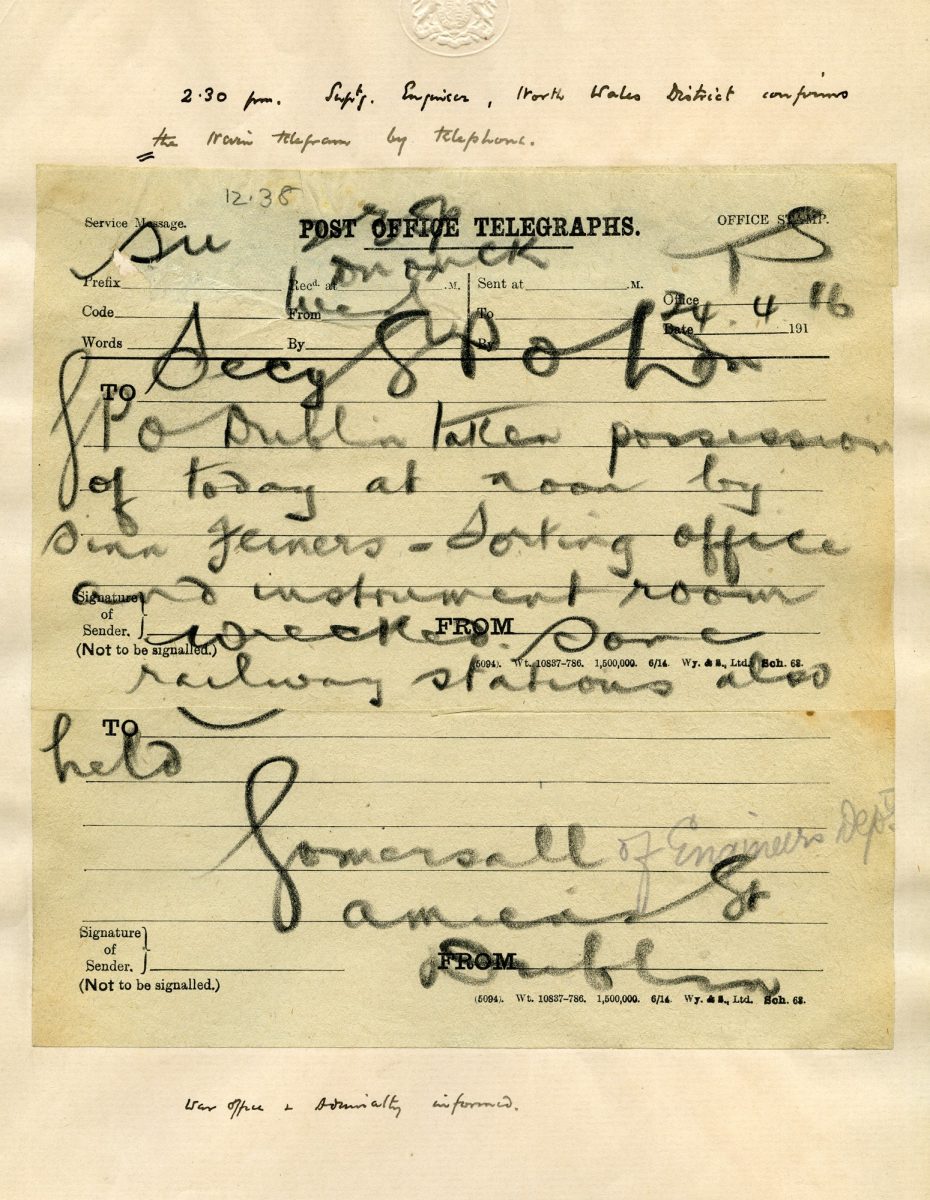 2.30 pm. Suptg. Engineer, North Wales District confirms
the Main telegram by telephone.
12.38
Service Message.
POST OFFICE TELEGRAPHS.
OFFICE STAMP.
TS
Prefix
Recd. at .M.
Sent at .M.
Office
Code
From
To
24.4.16
Date 191
Words
By
By
TO Secy GPO Ldn
GPO Dublin taken possession
of today at noon by
Sinn Feiners - Sorting office
and instrument room
Signature of Sender.
FROM
wrecked. Some
(Not to be signalled.)
(5094). Wt. 10837-786. 1,500,000. 6/14. Wy. & S., Ltd. Sch. 63.
railway stations also
TO
held
Gomersall of Engineers Dept
Amiens St
Signature of Sender.
FROM
Dublin
(Not to be signalled.)
(5094). Wt. 10837-786. 1,500,000. 6/14. Wy. & S., Ltd. Sch. 63.
War office & Admiralty informed.